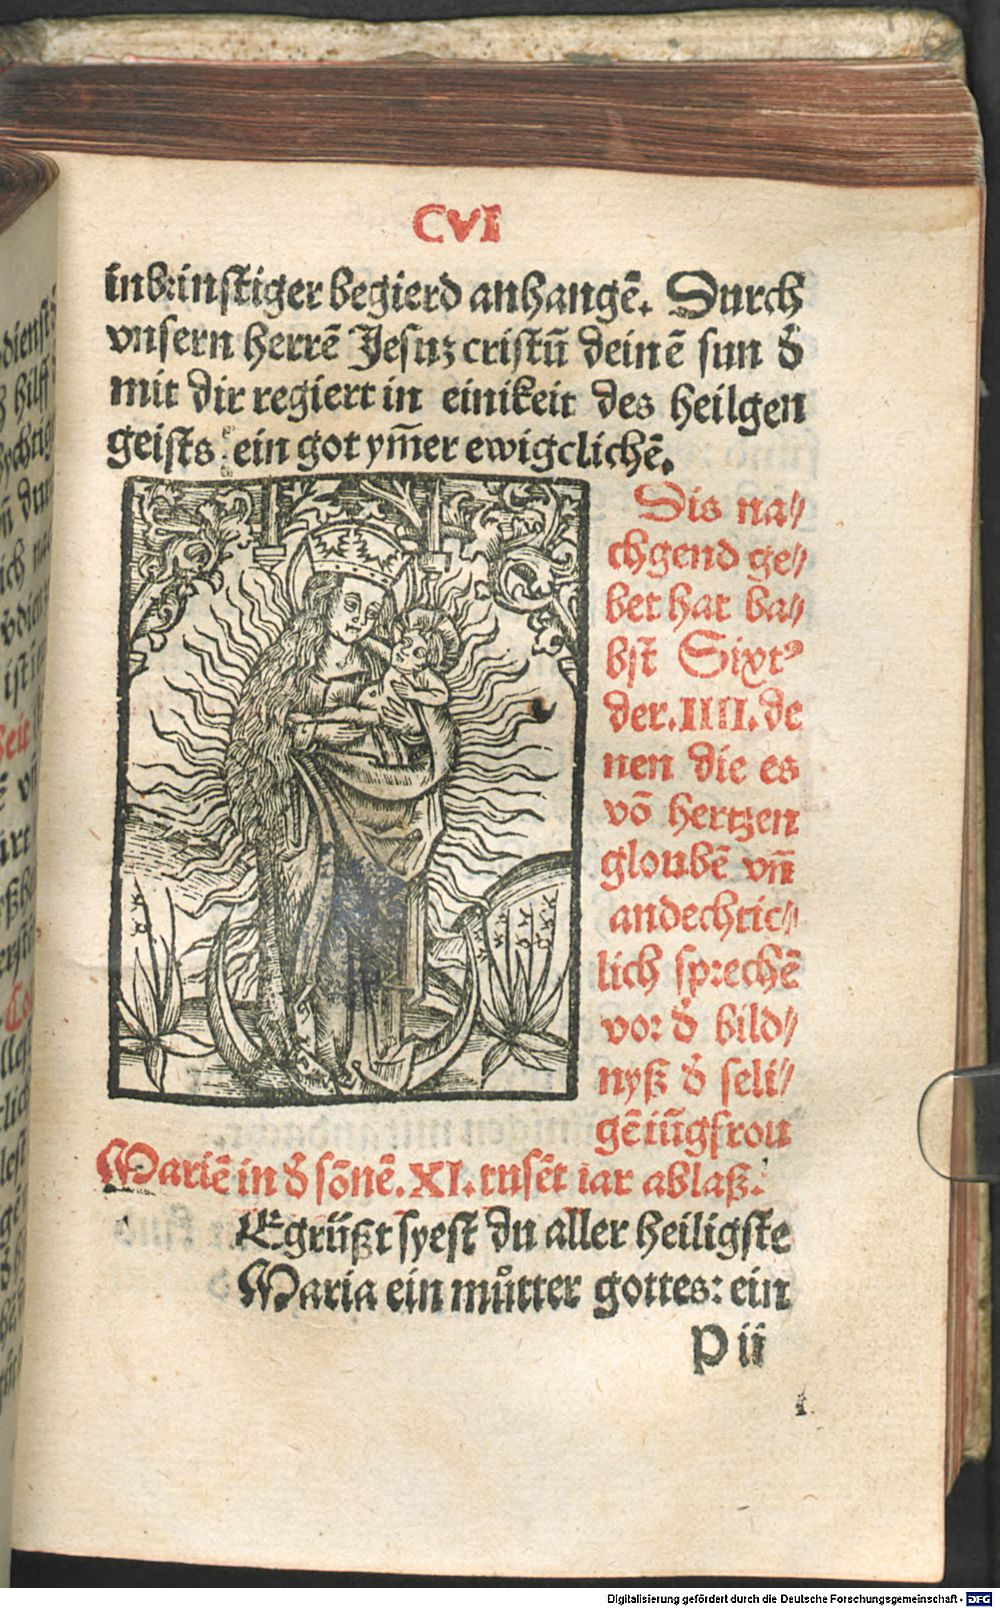 CVI
inbrinstiger begierd anhangē. Durch
vnsern herrē Jesuz cristū deinē sun d̕
mit dir regiert in einikeit des heilgen
geists ein got ym̄er ewigclichē.
Dis na⸗
chgend ge⸗
bet hat ba⸗
bst Sixtꝰ
der .IIII. de
nen die es
vō hertzen
gloubē vn̄
andechtic⸗
lich sprechē
vor d̕ bild⸗
nyß d̕ seli⸗
gē iūgfrou
Mariē in d̕ sōnē. XI. tusēt iar ablaß.
EGrüßt syest du aller heiligste
Maria ein můtter gottes: ein
P ii
Digitalisierung gefördert durch die Deutsche Forschungsgemeinschaft - DFG